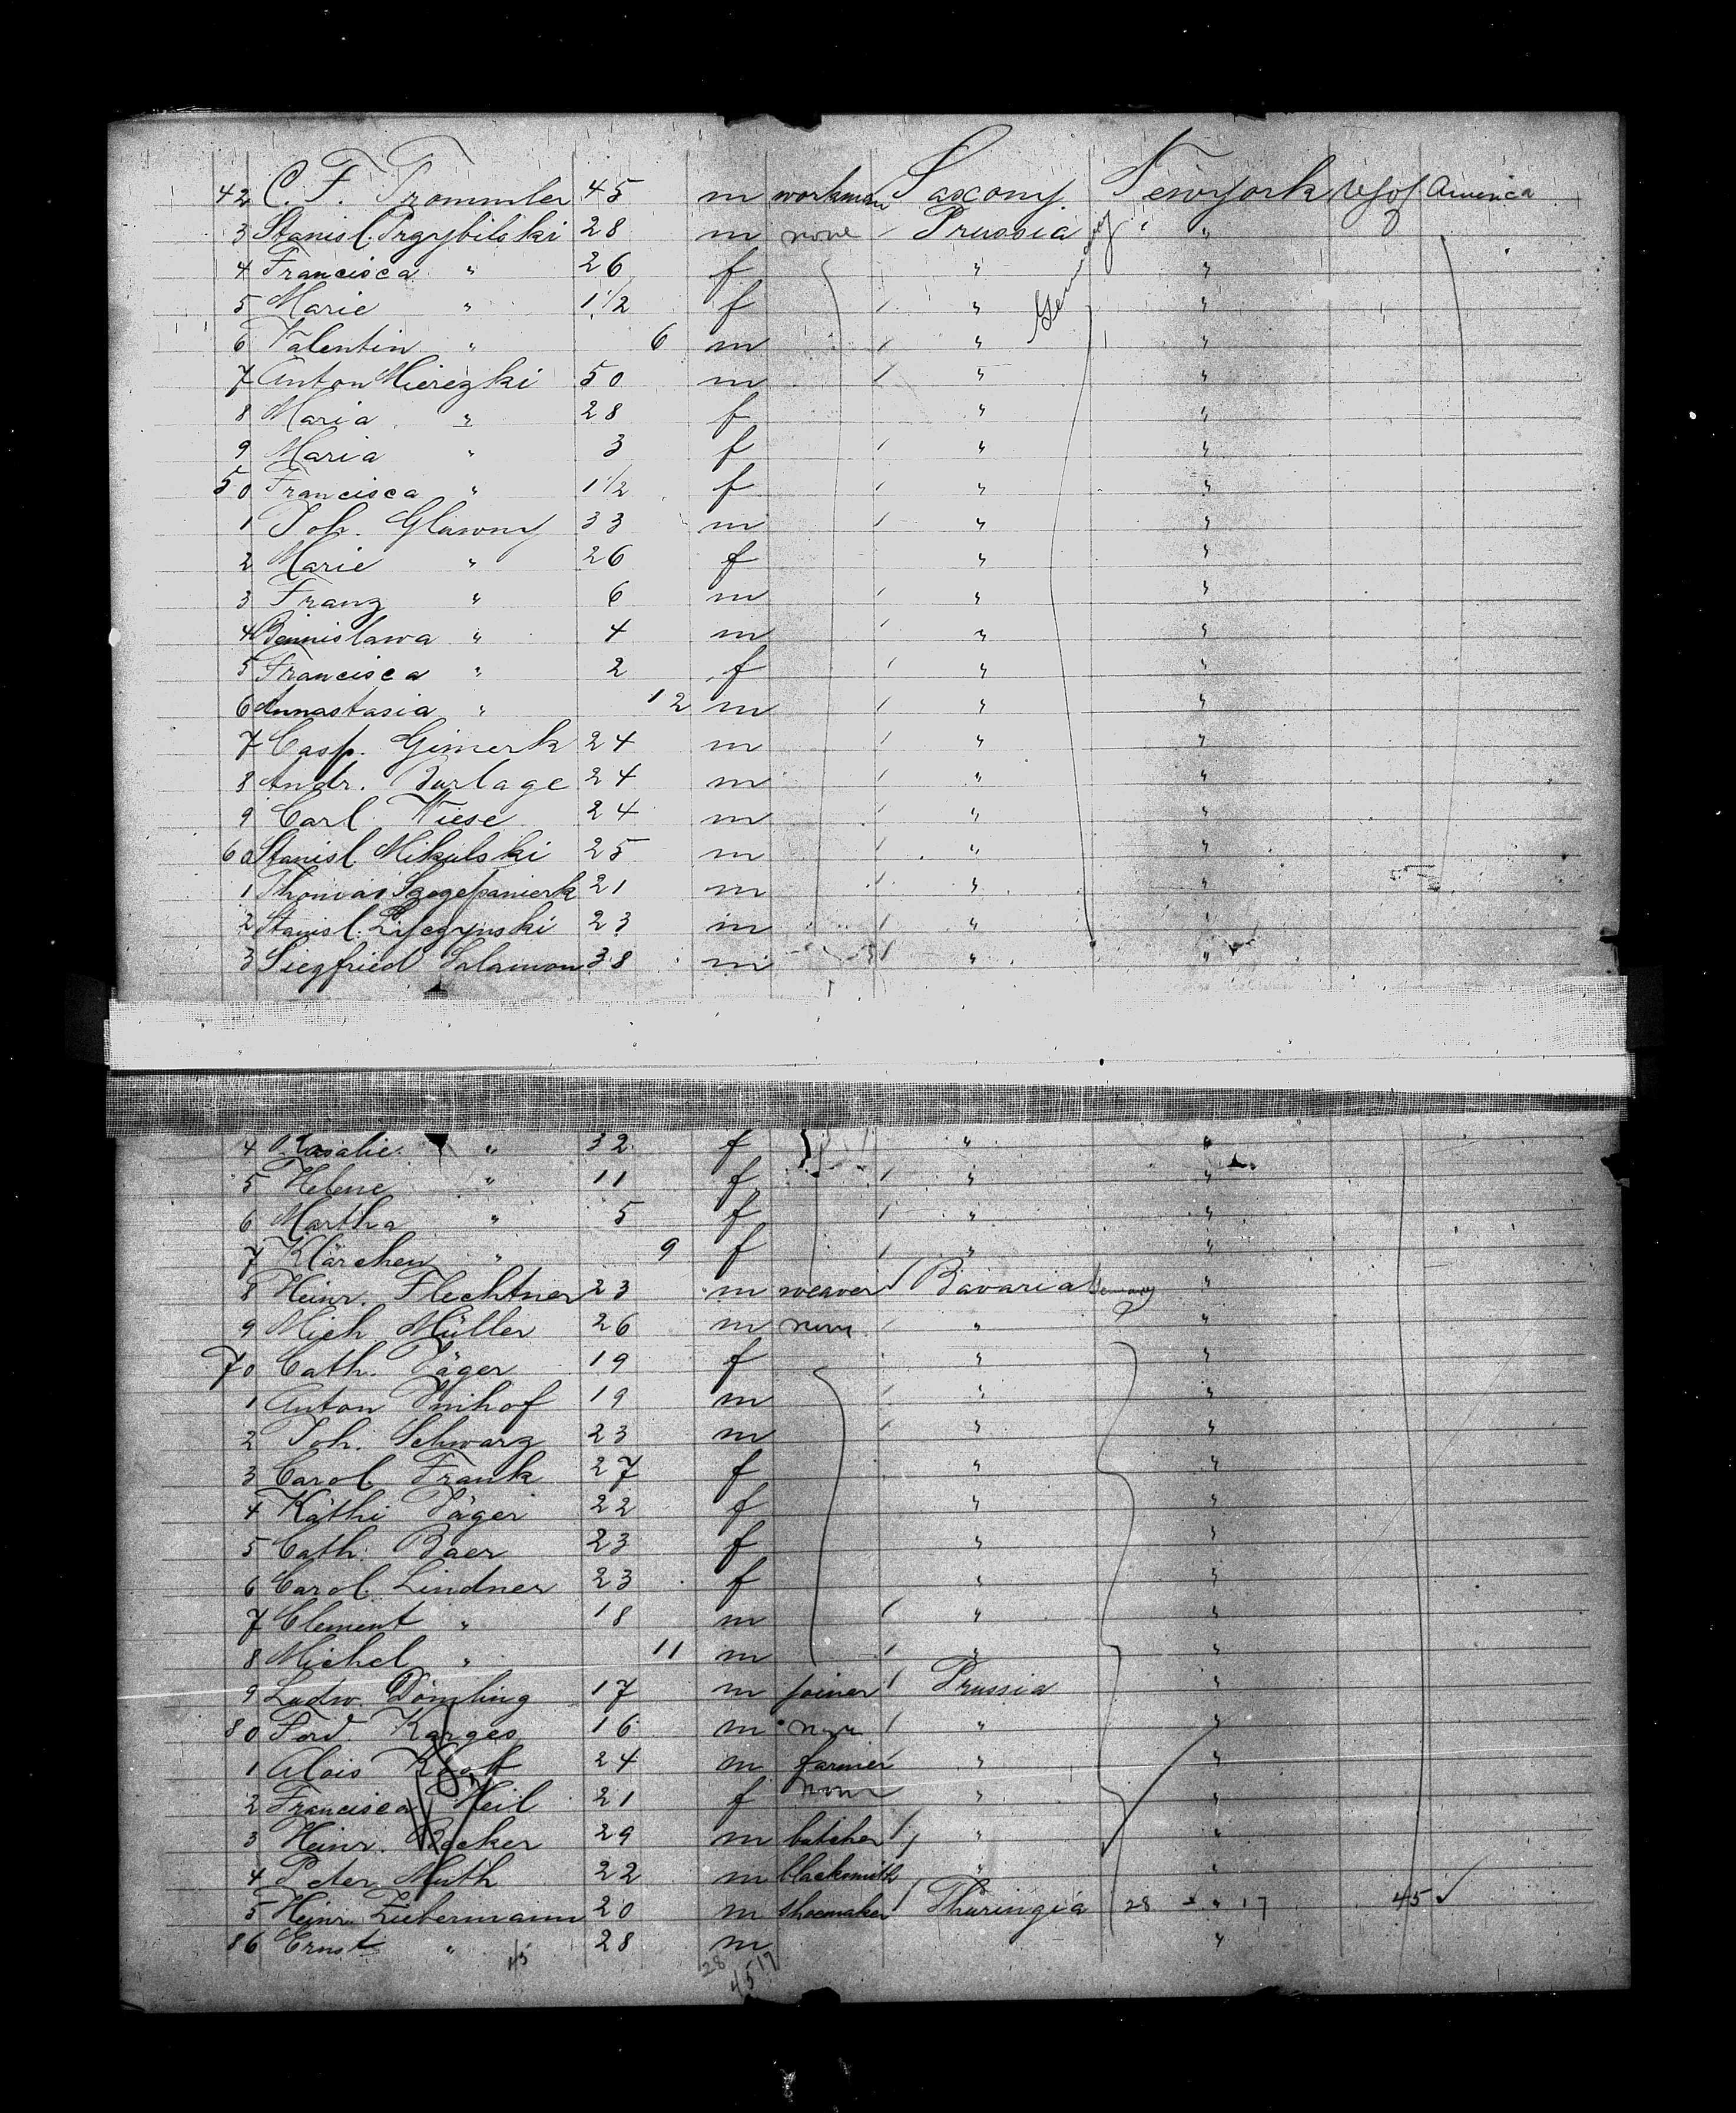 42 C. F. Trommler 45 m workman Saxony. Newyork US of America
3 Stanisl. Przybilski 28 m none Prussia Germany "
4 Francisca " 26 f " "
5 Marie " 1 1/2 f " "
6 Valentin " 6 m " "
7 Anton Mierezki 50 m " "
8 Maria " 28 f " "
9 Maria " 3 f " "
50 Francisca " 1 1/2 f " "
1 Joh. Glawny 33 m " "
2 Marie " 26 f " "
3 Franz " 6 m " "
4 Bennislawa " 4 m " "
5 Francisca " 2 f " "
6 Annastasia " 12 m " "
7 Casp. Gimerk 24 m " "
8 Andr. Burlage 24 m " "
9 Carl Wiese 24 m " "
60 Stanisl. Mikulski 25 m " "
1 Thomas Szezepanierk 21 m " "
2 Stanisl. 23 m " "
3 Siegfried Salamon 38 m " "
4 Rosalie " 32 f " "
5 Helene " 11 f " "
6 Martha " 5 f " "
7 Klärchen " 9 f " "
8 Heinr. Flechtner 23 m weaver Bavaria Germany "
9 Mich. Müller 26 m none " "
70 Cath. Jäger 19 f " "
1 Anton Imhof 19 m " "
2 Joh. Schwarz 23 m " "
3 Carol. Frank 27 f " "
4 Käthi Jäger 22 f " "
5 Cath. Baer 23 f " "
6 Carol. Lindner 23 f " "
7 Clement " 18 m " "
8 Michel " 11 m " "
9 Ludw. Dömling 17 m joiner Prussia "
80 Ferd. Karges 16 m none " "
1 Alois 24 m farmer " "
2 Francisca Heil 21 f none " "
3 Heinr. Becker 29 m butcher " "
4 Peter Muth 22 m blacksmith " "
5 Heinr. Liebermann 20 m shoemaker Thuringia 28 " 17 45
86 Ernst " 28 m "
45 28 17
45